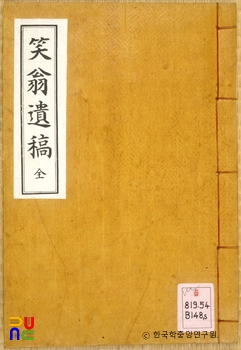 笑翁遺稿 全
819.54
B148s
© 한국학중앙연구원